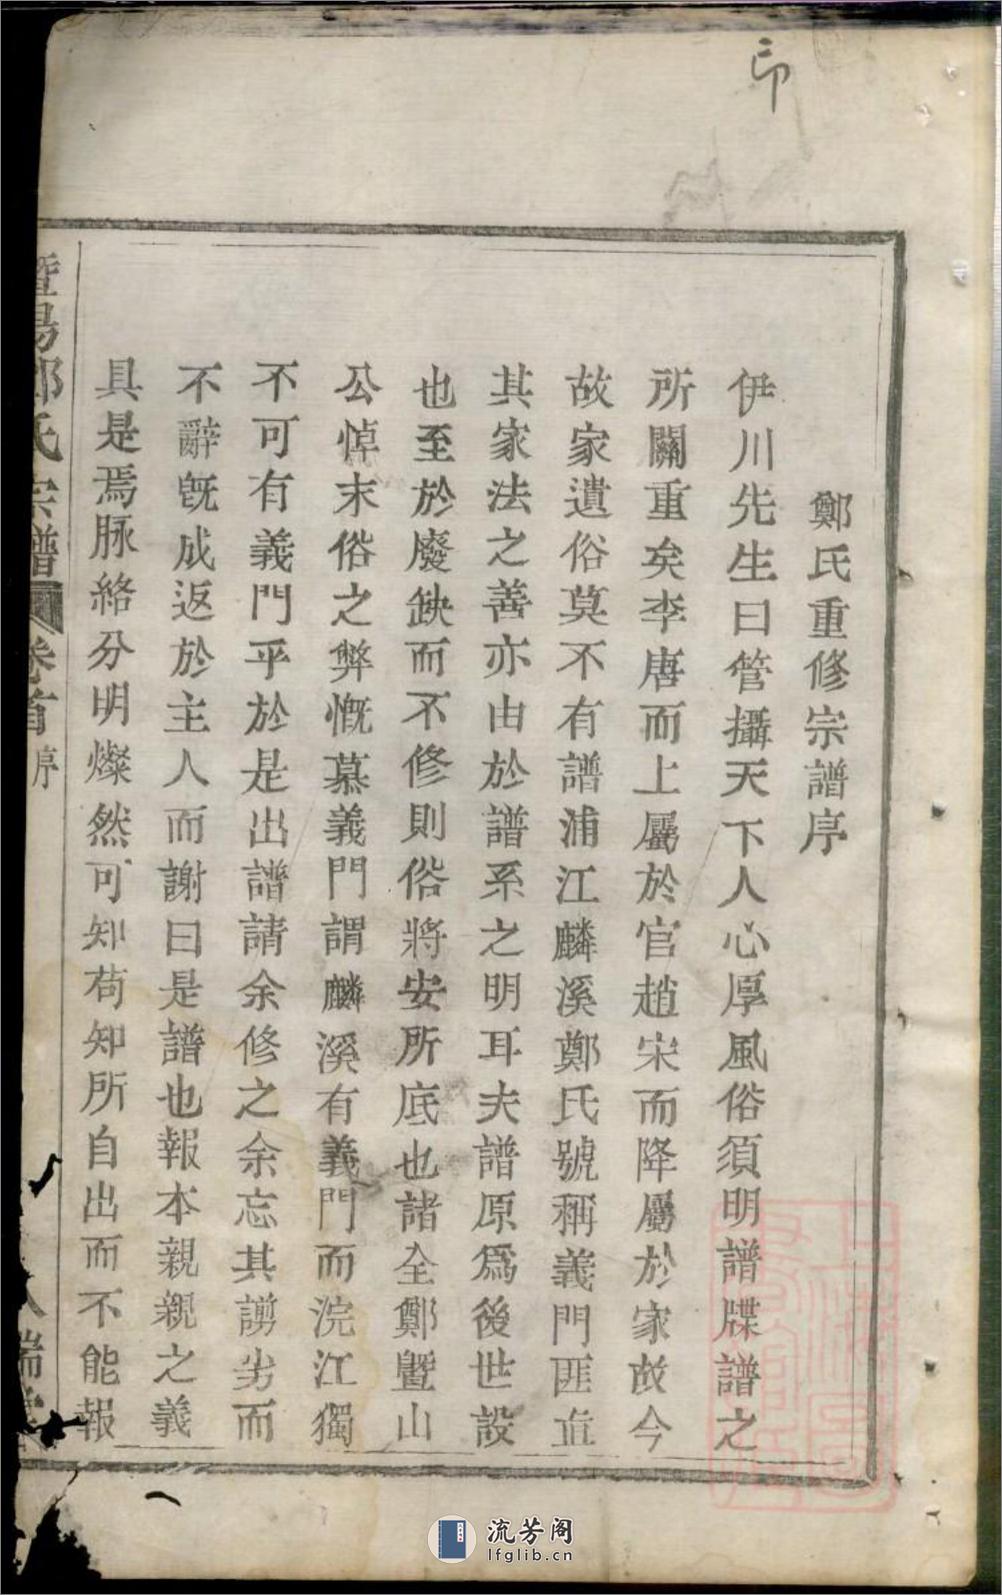 印
鄭氏重修宗譜序
伊川先生曰管攝天下人心厚風俗須明譜牒譜之
所關重矣李唐而上屬於官趙宋而降屬於家故今
故家遺俗莫不有譜浦江麟溪鄭氏號稱義門匪直
其家法之善亦由於譜系之明耳夫譜原爲後世設
也至於廢缺而不修則俗將安所底也諸全鄭曁山
公悼末俗之弊慨慕義門謂麟溪有義門而浣江獨
不可有義門乎於是出譜請余修之余忘其謭劣而
不辭旣成返於主人而謝曰是譜也報本親親之義
具是焉脉絡分明燦然可知苟知所自出而不能報
暨陽鄭氏宗譜 卷首 序
流芳阁
lfglib.cn